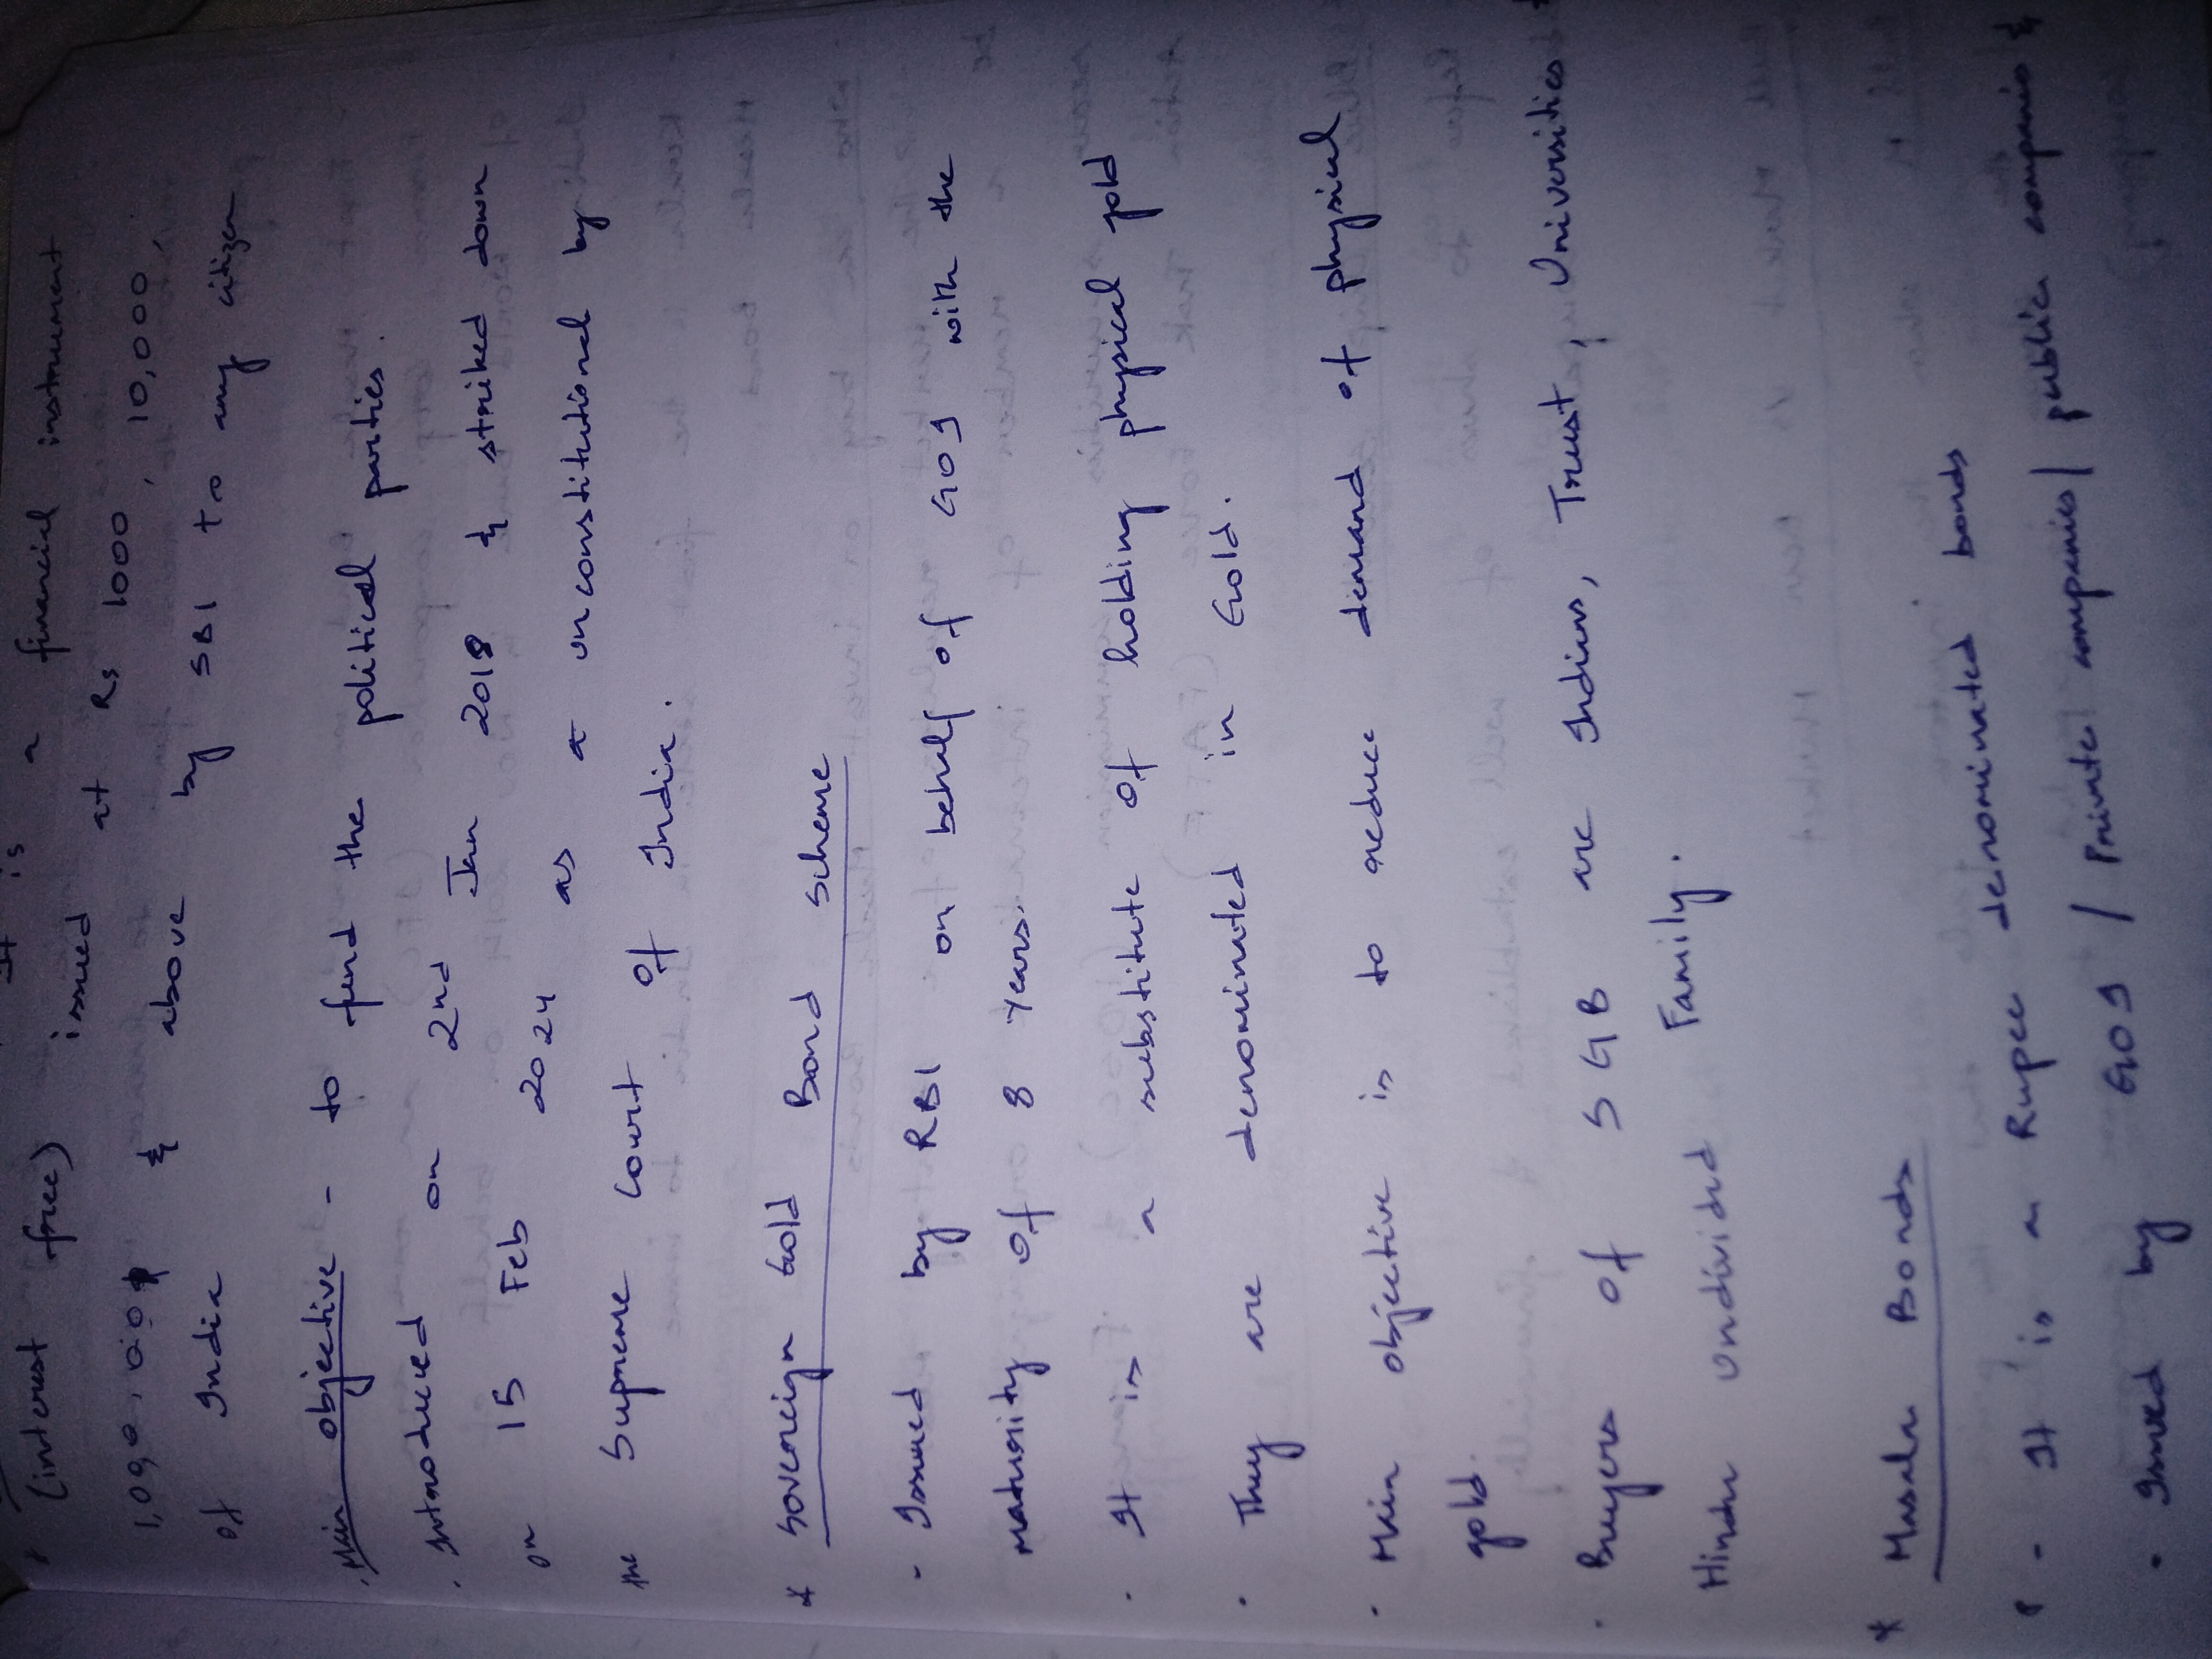 It is a financial instrument
* (interest free) issued at Rs 1000, 10,000,
1,00,000 & above by SBI to any citizen
of India
. Main objective - to fund the political parties.
. Introduced on 2nd Jan 2018 & striked down
on 15 Feb 2024 as a unconstitutional by
the Supreme Court of India.
* Sovereign Gold Bond scheme
- Issued by RBI on behalf of GOI with the
maturity of 8 years.
. It is a substitute of holding physical gold
. They are denominated in Gold.
. Main objective is to reduce demand of physical
gold.
. Buyers of SGB are Indians, Trust, Universities &
Hindu Undivided Family.
* Masala Bonds
- It is a Rupee denominated bonds
. Issued by GOI / Private companies / public companies &